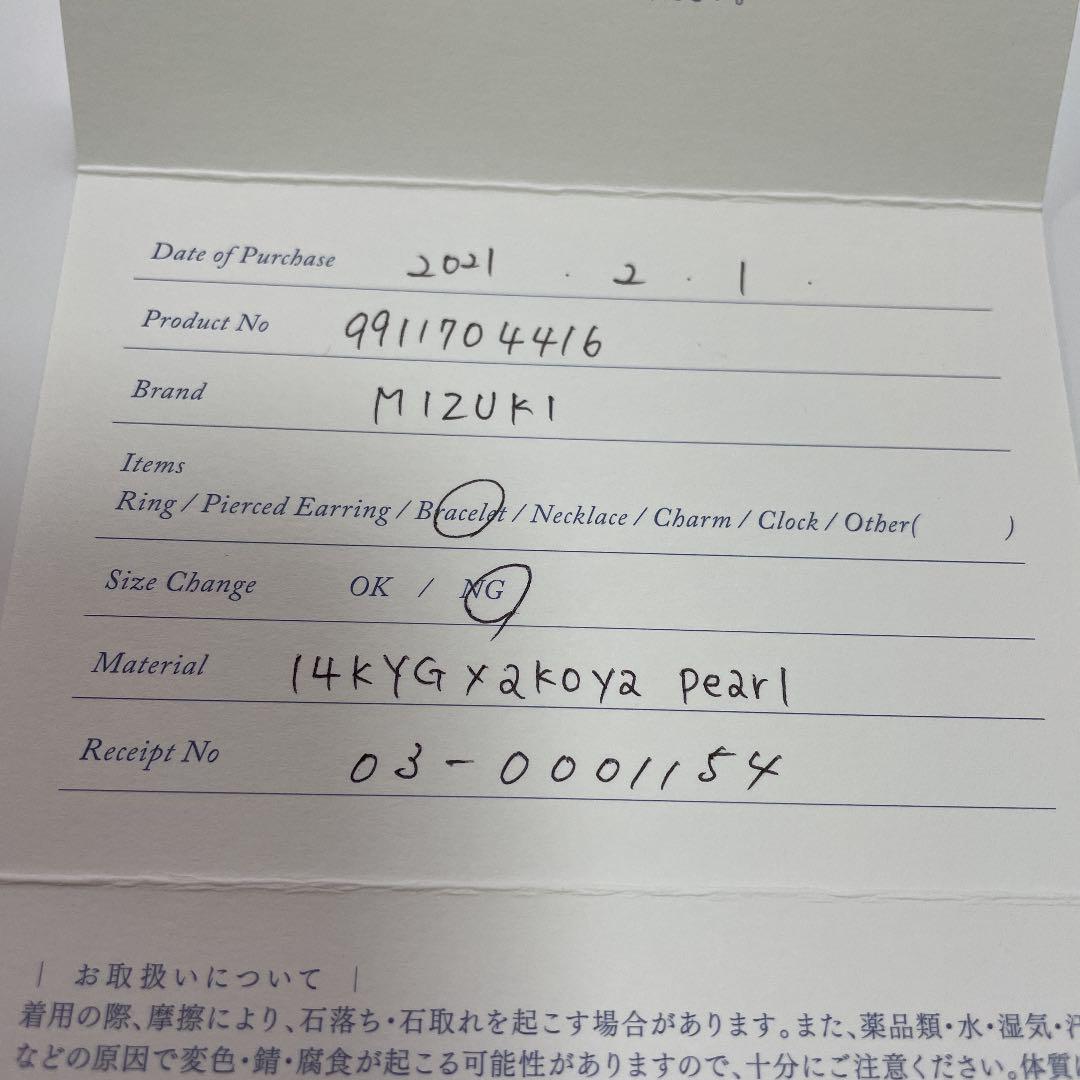 Date of Purchase 2021 . 2 . 1 .
Product No 9911704416
Brand MIZUKI
Items
Ring / Pierced Earring / Bracelet / Necklace / Charm / Clock / Other( )
Size Change OK / NG
Material 14KYG x akoya pearl
Receipt No 03-0001154
| お取扱いについて |
着用の際、摩擦により、石落ち・石取れを起こす場合があります。また、薬品類・水・湿気・汗
などの原因で変色・錆・腐食が起こる可能性がありますので、十分にご注意ください。体質に